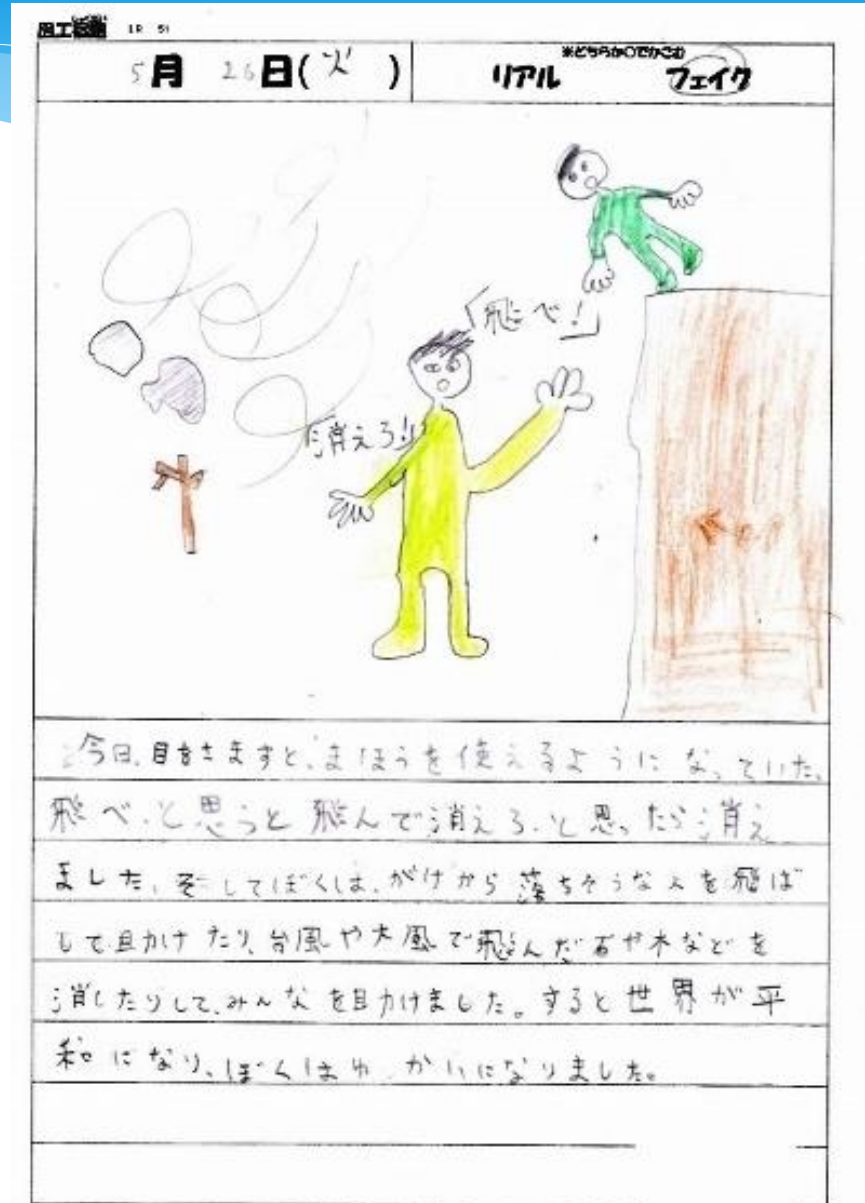 5月 26日(火)
※どちらか○でかこむ
リアル フェイク
「飛べ!」
「消えろ!」
がけ
今日、目をさますと、まほうを使えるようになっていた。
飛べ、と思うと飛んで消えろ、と思ったら消え
ました、そしてぼくは、がけから落ちそうな人を飛ば
して助けたり、台風や大風で飛んだ石や木などを
消したりして、みんなを助けました。すると世界が平
和になり、ぼくはゆかいになりました。